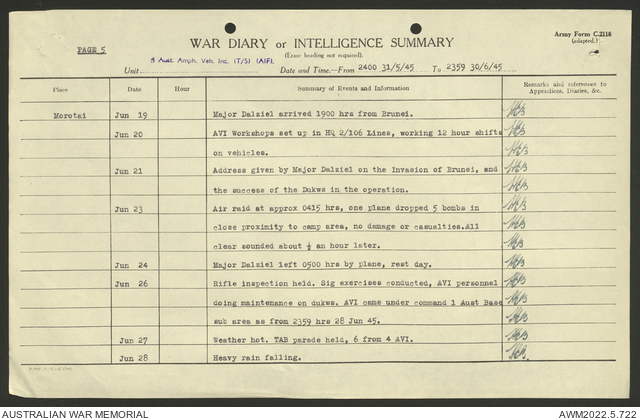 PAGE 5
WAR DIARY or INTELLIGENCE SUMMARY
(Erase heading not required).
Army Form C.2118
(adapted.)
Aust. Amph. Veh. Inc. (T/S) (AIF).
Unit
Date and Time.—From 2400 31/5/45 To 2359 30/6/45
Place Date Hour Summary of Events and Information Remarks and references to
Appendices, Diaries, &c.
Morotai Jun 19 Major Dalziel arrived 1900 hrs from Brunei.
Jun 20 AVI Workshops set up in HQ 2/106 Lines, working 12 hour shifts
on vehicles.
Jun 21 Address given by Major Dalziel on the Invasion of Brunei, and
the success of the Dukws in the operation.
Jun 23 Air raid at approx 0415 hrs, one plane dropped 5 bombs in
close proximity to camp area, no damage or casualties.All
clear sounded about ½ an hour later.
Jun 24 Major Dalziel left 0500 hrs by plane, rest day.
Jun 26 Rifle inspection held. Sig exercises conducted, AVI personnel
doing maintenance on dukws. AVI came under command 1 Aust Base
sub area as from 2359 hrs 28 Jun 45.
Jun 27 Weather hot. TAB parade held, 6 from 4 AVI.
Jun 28 Heavy rain falling.
AUSTRALIAN WAR MEMORIAL
AWM2022.5.722